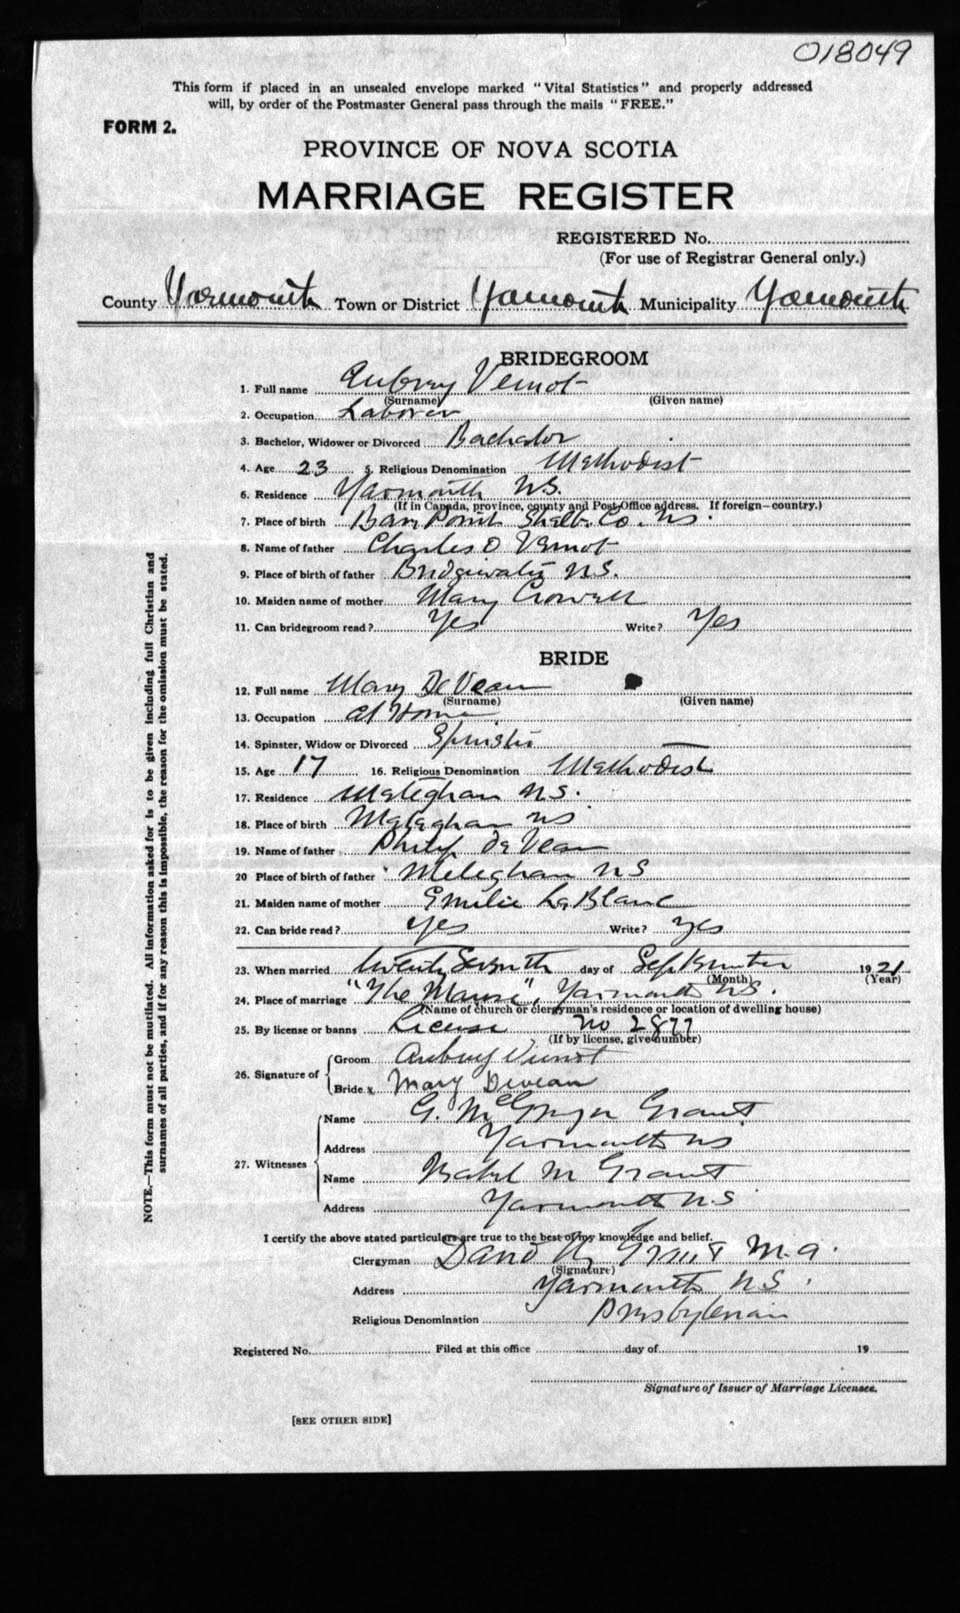 018049
This form if placed in an unsealed envelope marked "Vital Statistics" and properly addressed
will, by order of the Postmaster General pass through the mails "FREE."
FORM 2.
PROVINCE OF NOVA SCOTIA
MARRIAGE REGISTER
REGISTERED No.
(For use of Registrar General only.)
County Yarmouth Town or District Yarmouth Municipality Yarmouth
BRIDEGROOM
1. Full name Aubrey Vernot
(Surname) (Given name)
2. Occupation Laborer
3. Bachelor, Widower or Divorced Bachelor
4. Age 23 5. Religious Denomination Methodist
6. Residence Yarmouth N.S.
(If in Canada, province, county and Post Office address. If foreign—country.)
7. Place of birth Point Shelb. Co. N.S.
8. Name of father Charles O Vernot
9. Place of birth of father Bridgewater N.S.
10. Maiden name of mother Mary Crowell
11. Can bridegroom read? Yes Write? Yes
BRIDE
12. Full name Mary De Veau
(Surname) (Given name)
13. Occupation At Home
14. Spinster, Widow or Divorced Spinster
15. Age 17 16. Religious Denomination Methodist
17. Residence Meteghan N.S.
18. Place of birth Meteghan NS
19. Name of father Philip De Veau
20 Place of birth of father Meteghan NS
21. Maiden name of mother Emilie La Blanc
22. Can bride read? yes Write? yes
23. When married twenty Seventh day of September 1921
(Month) (Year)
24. Place of marriage "The Manse", Yarmouth N.S.
(Name of church or clergyman's residence or location of dwelling house)
25. By license or banns License No 2877
(If by license, give number)
26. Signature of Groom Aubrey Vernot
Bride x Mary Deveau
27. Witnesses
Name G. McGregor Grant
Address Yarmouth NS
Name Isabel M Grant
Address Yarmouth N.S
I certify the above stated particulars are true to the best of my knowledge and belief.
Clergyman David Grant M.A.
(Signature)
Address Yarmouth N.S.
Religious Denomination Presbyterian
Registered No. Filed at this office day of 19
Signature of Issuer of Marriage Licenses.
[SEE OTHER SIDE]
NOTE.—This form must not be mutilated. All information asked for is to be given including full Christian and
surnames of all parties, and if for any reason this is impossible, the reason for the omission must be stated.